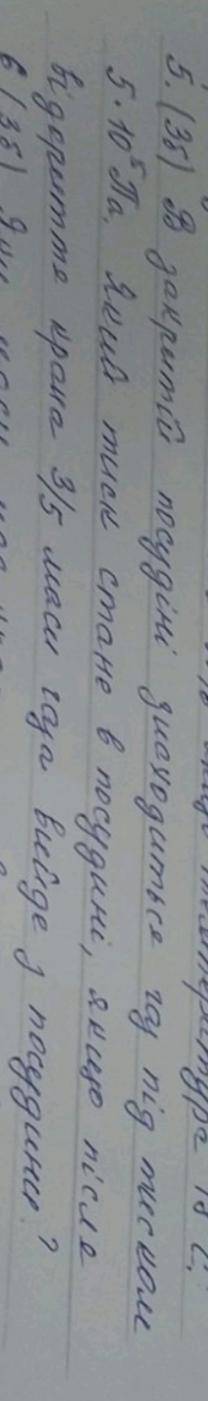 температура 18 С.
5. (3б) В закритій посудині знаходиться газ під тиском
5·10⁵ Па. Який тиск стане в посудині, якщо після
відкриття крана 3/5 маси газа вийде з посудини?
6 (3б)